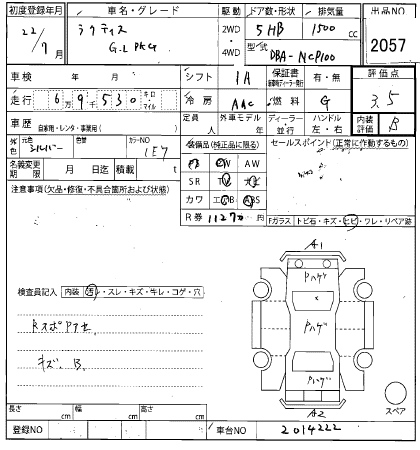 初度登録年月 車名・グレード 駆動 ドア数・形状 排気量 出品NO
22/7月 ラクティス 2WD 5HB 1500cc
G.L PKG 4WD 型式 DBA-NCP100 2057
車検 年 月 シフト IA 保証書 有・無 評価点
走行 6万9千530 キロ マイル 冷房 AAC 燃料 G 3.5
車歴 自家用・レンタ・事業用( ) 定員 人 外車モデル 年 ディーラー・並行 ハンドル 左・右 内装評価 B
外色 元色 シルバー 色替 カラーNO 1E7 装備品(純正品に限る) セールスポイント(正常に作動するもの)
名義変更期限 月 日迄 積載 t PS PW AW
SR TV ナビ
注意事項(欠品・修復・不具合箇所および状態) カワ エアB ABS
R券 11270
Fガラス トビ石・キズ・ヒビ・ワレ・リペア跡
A1
Pハゲ
検査員記入 内装 汚レ・スレ・キズ・キレ・コゲ・穴
Pハゲ
キズ. B.
Pハゲ
スペア
長さ cm 幅 cm 高さ cm A2
登録NO 車台NO 2014222